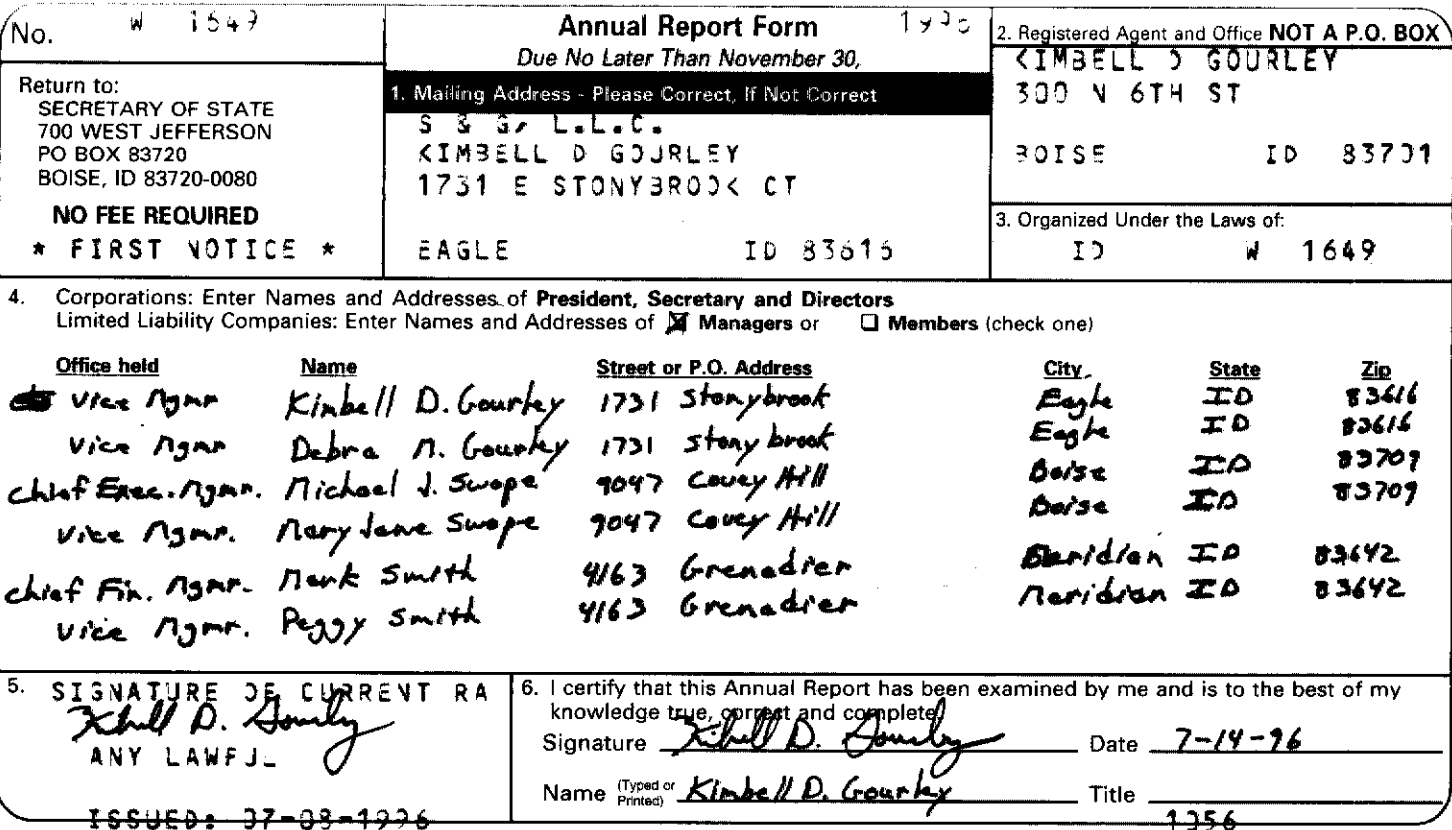 No. W 1649
Annual Report Form 1996
Due No Later Than November 30,
Return to:
SECRETARY OF STATE
700 WEST JEFFERSON
PO BOX 83720
BOISE, ID 83720-0080
NO FEE REQUIRED
* FIRST NOTICE *
1. Mailing Address - Please Correct, If Not Correct
S & G, L.L.C.
KIMBELL D GOURLEY
1731 E STONYBROOK CT
EAGLE ID 83616
2. Registered Agent and Office NOT A P.O. BOX
KIMBELL D GOURLEY
300 N 6TH ST
BOISE ID 83701
3. Organized Under the Laws of:
ID W 1649
4. Corporations: Enter Names and Addresses of President, Secretary and Directors
Limited Liability Companies: Enter Names and Addresses of Managers or Members (check one)
Office held Name Street or P.O. Address City State Zip
Vice Mgmr Kimbell D. Gourley 1731 Stonybrook Eagle ID 83616
Vice Mgmr Debra M. Gourley 1731 Stonybrook Eagle ID 83616
Chief Exec. Mgmr. Michael J. Swope 9047 Covey Hill Boise ID 83709
Vice Mgmr. Mary Jane Swope 9047 Covey Hill Boise ID 83709
Chief Fin. Mgmr. Mark Smith 4163 Grenadier Meridian ID 83642
Vice Mgmr. Peggy Smith 4163 Grenadier Meridian ID 83642
5. SIGNATURE OF CURRENT RA
Kimbell D. Gourley
ANY LAWFUL
ISSUED: 07-08-1996
6. I certify that this Annual Report has been examined by me and is to the best of my
knowledge true, correct and complete
Signature Kimbell D. Gourley Date 7-14-96
Name (Typed or Printed) Kimbell D. Gourley Title
1356